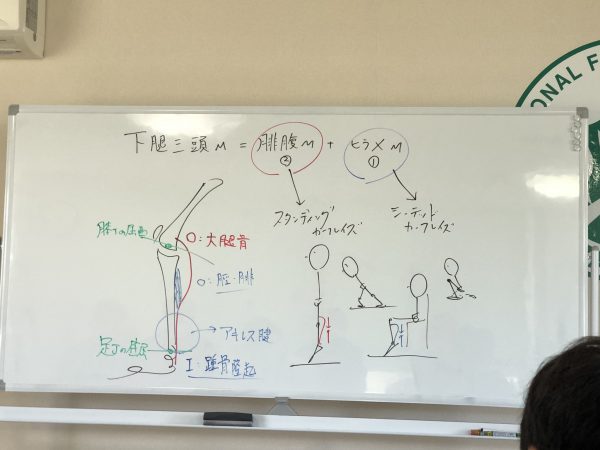 下腿三頭M = 腓腹M + ヒラメM
② ①
スタンディング
カーフレイズ
シーテッド
カーフレイズ
O:大腿骨
O:脛・腓
アキレス腱
I:踵骨隆起
ONAL F